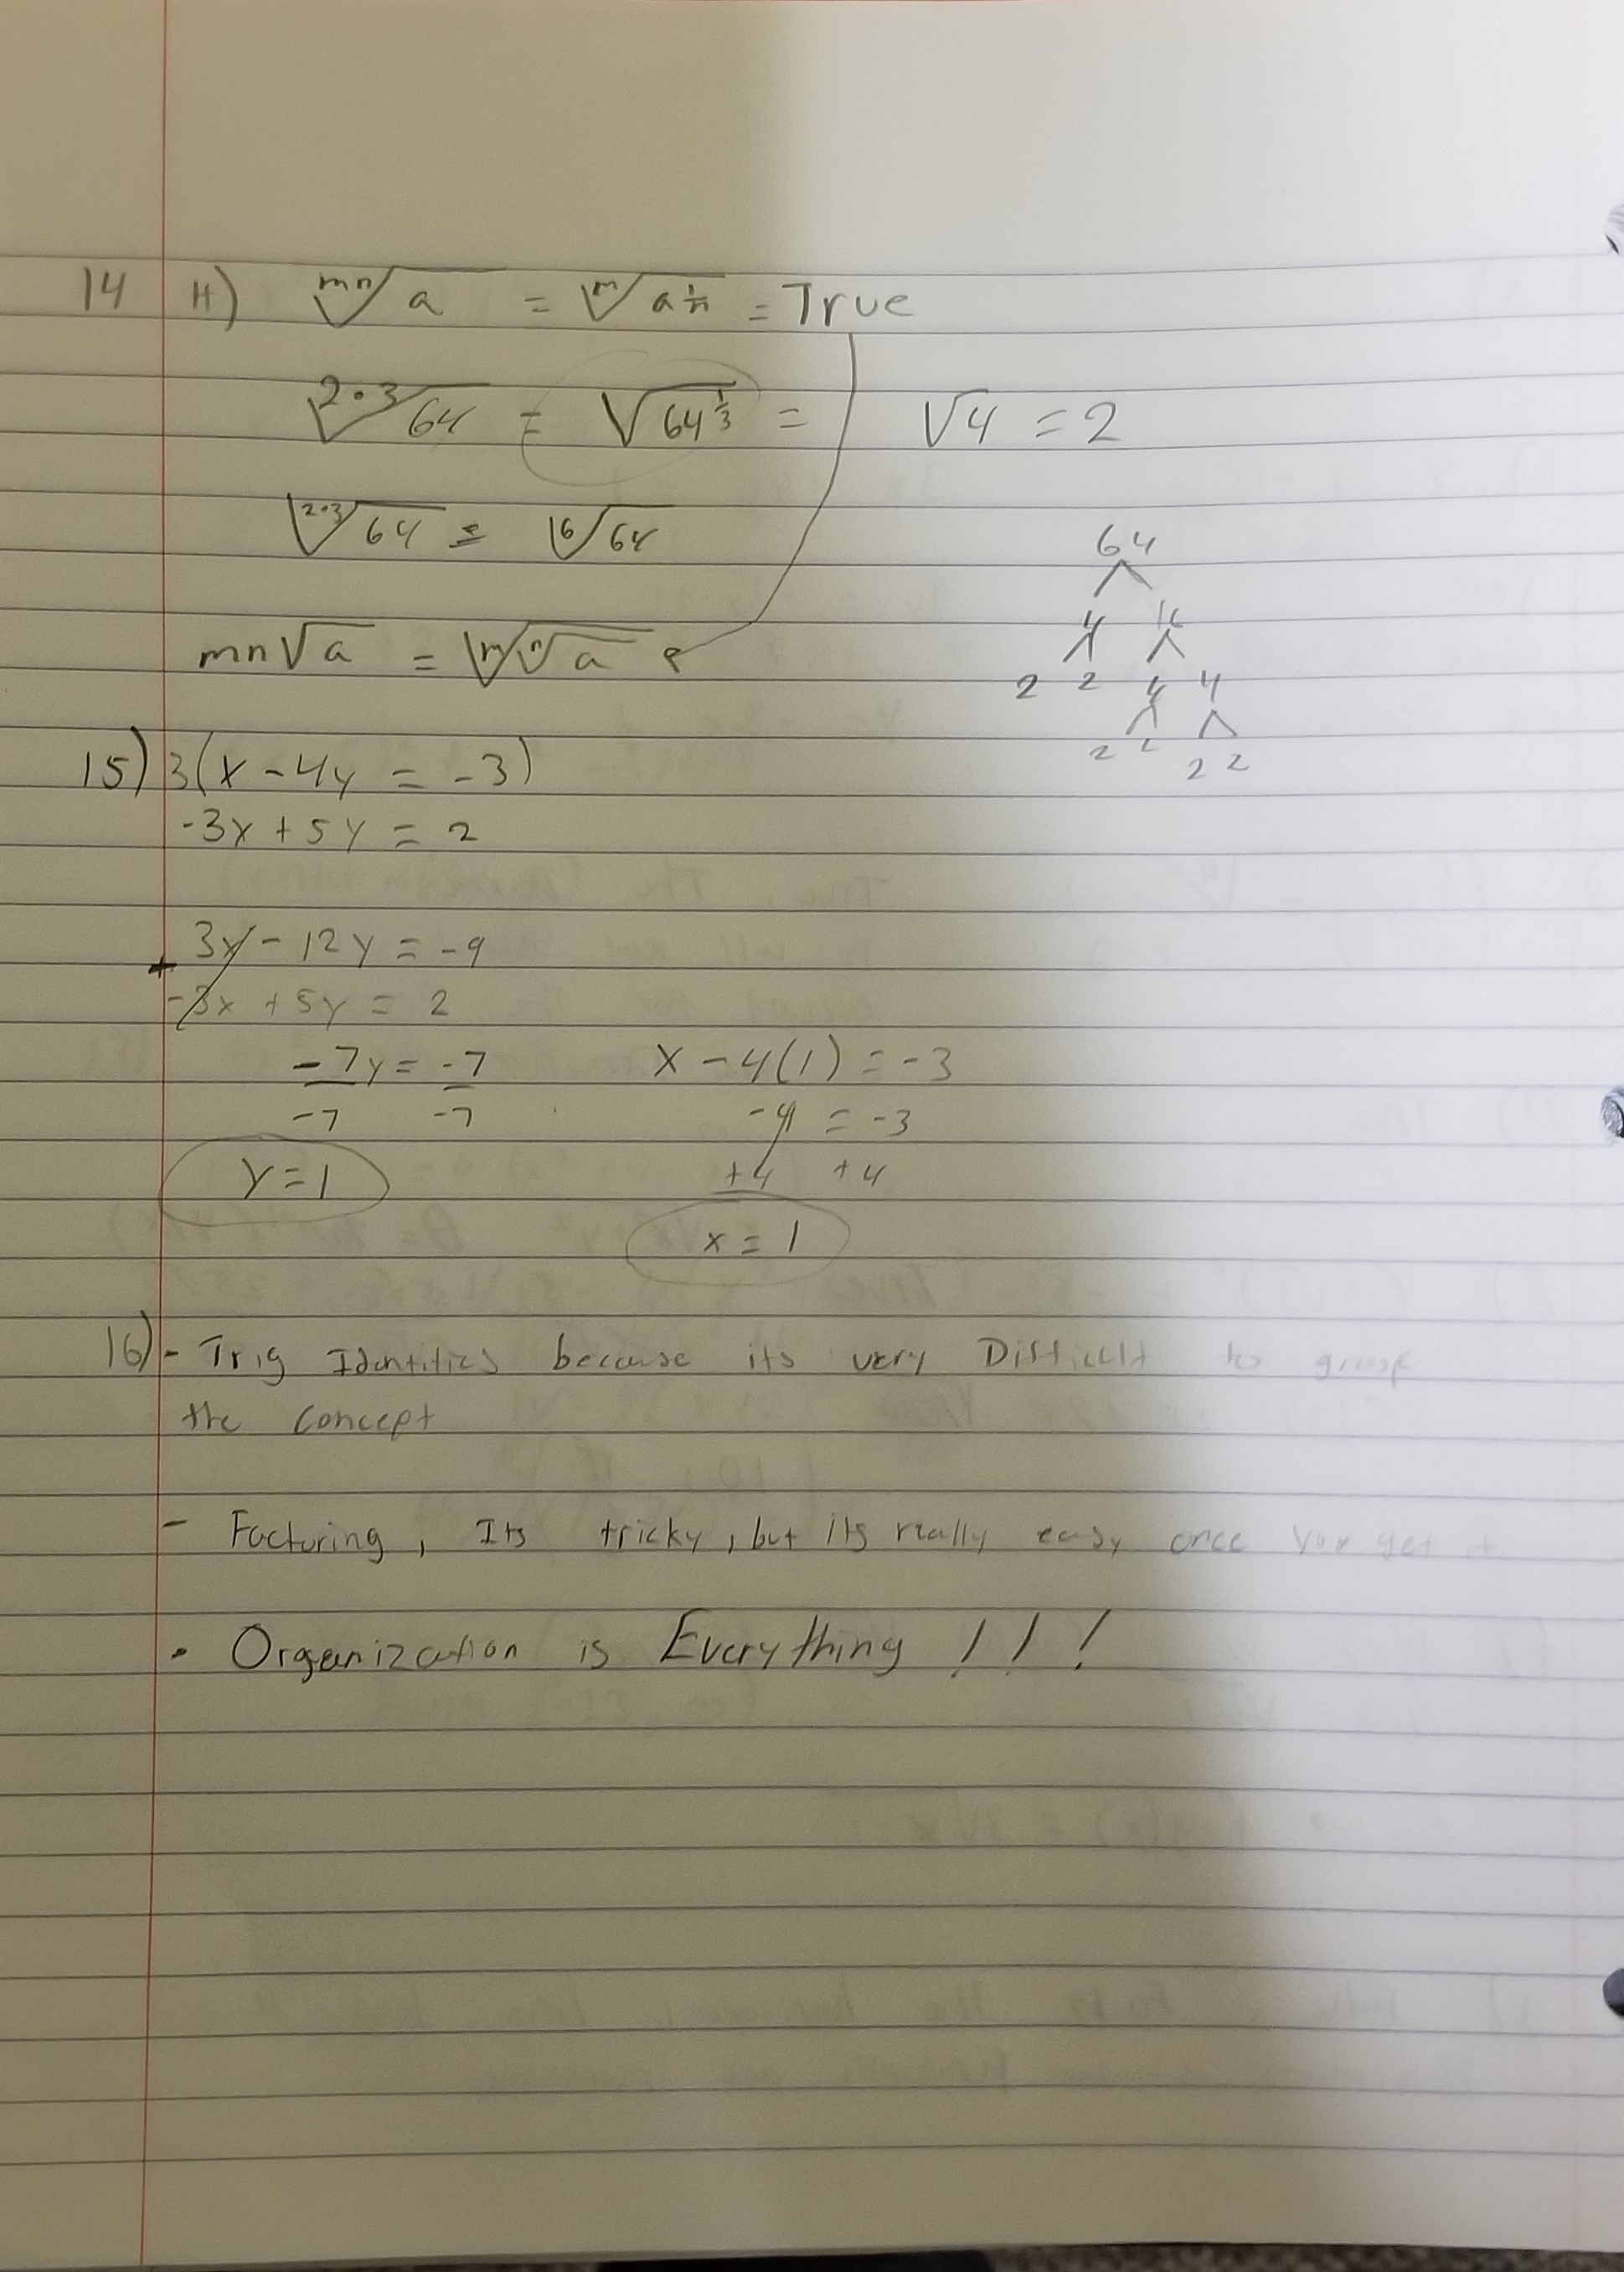 14 H) ᵐⁿ√a = ᵐ√(a^(1/n)) = True
²·³√64 = √(64^(1/3)) = √4 = 2
²·³√64 = ⁶√64
64
4 16
mn√a = ᵐ√(ⁿ√a)
2 2 4 4
2 2 2 2
15) 3(x - 4y = -3)
-3x + 5y = 2
3x - 12y = -9
+ -3x + 5y = 2
-7y = -7 x - 4(1) = -3
-7 -7 -4 = -3
y = 1 +4 +4
x = 1
16) - Trig Identities because its very Difficult to grasp
the concept
- Factoring, Its tricky, but its really easy once you get it
• Organization is Everything ! ! !